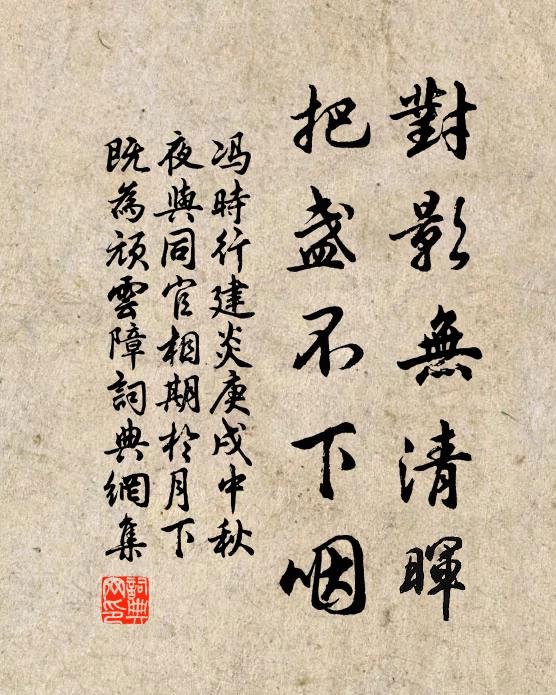 對影無清暉
把盞不下咽
冯時行建炎庚戌中秋
夜與同官相期於月下
既為頑雲障詞典網集
詞典網印